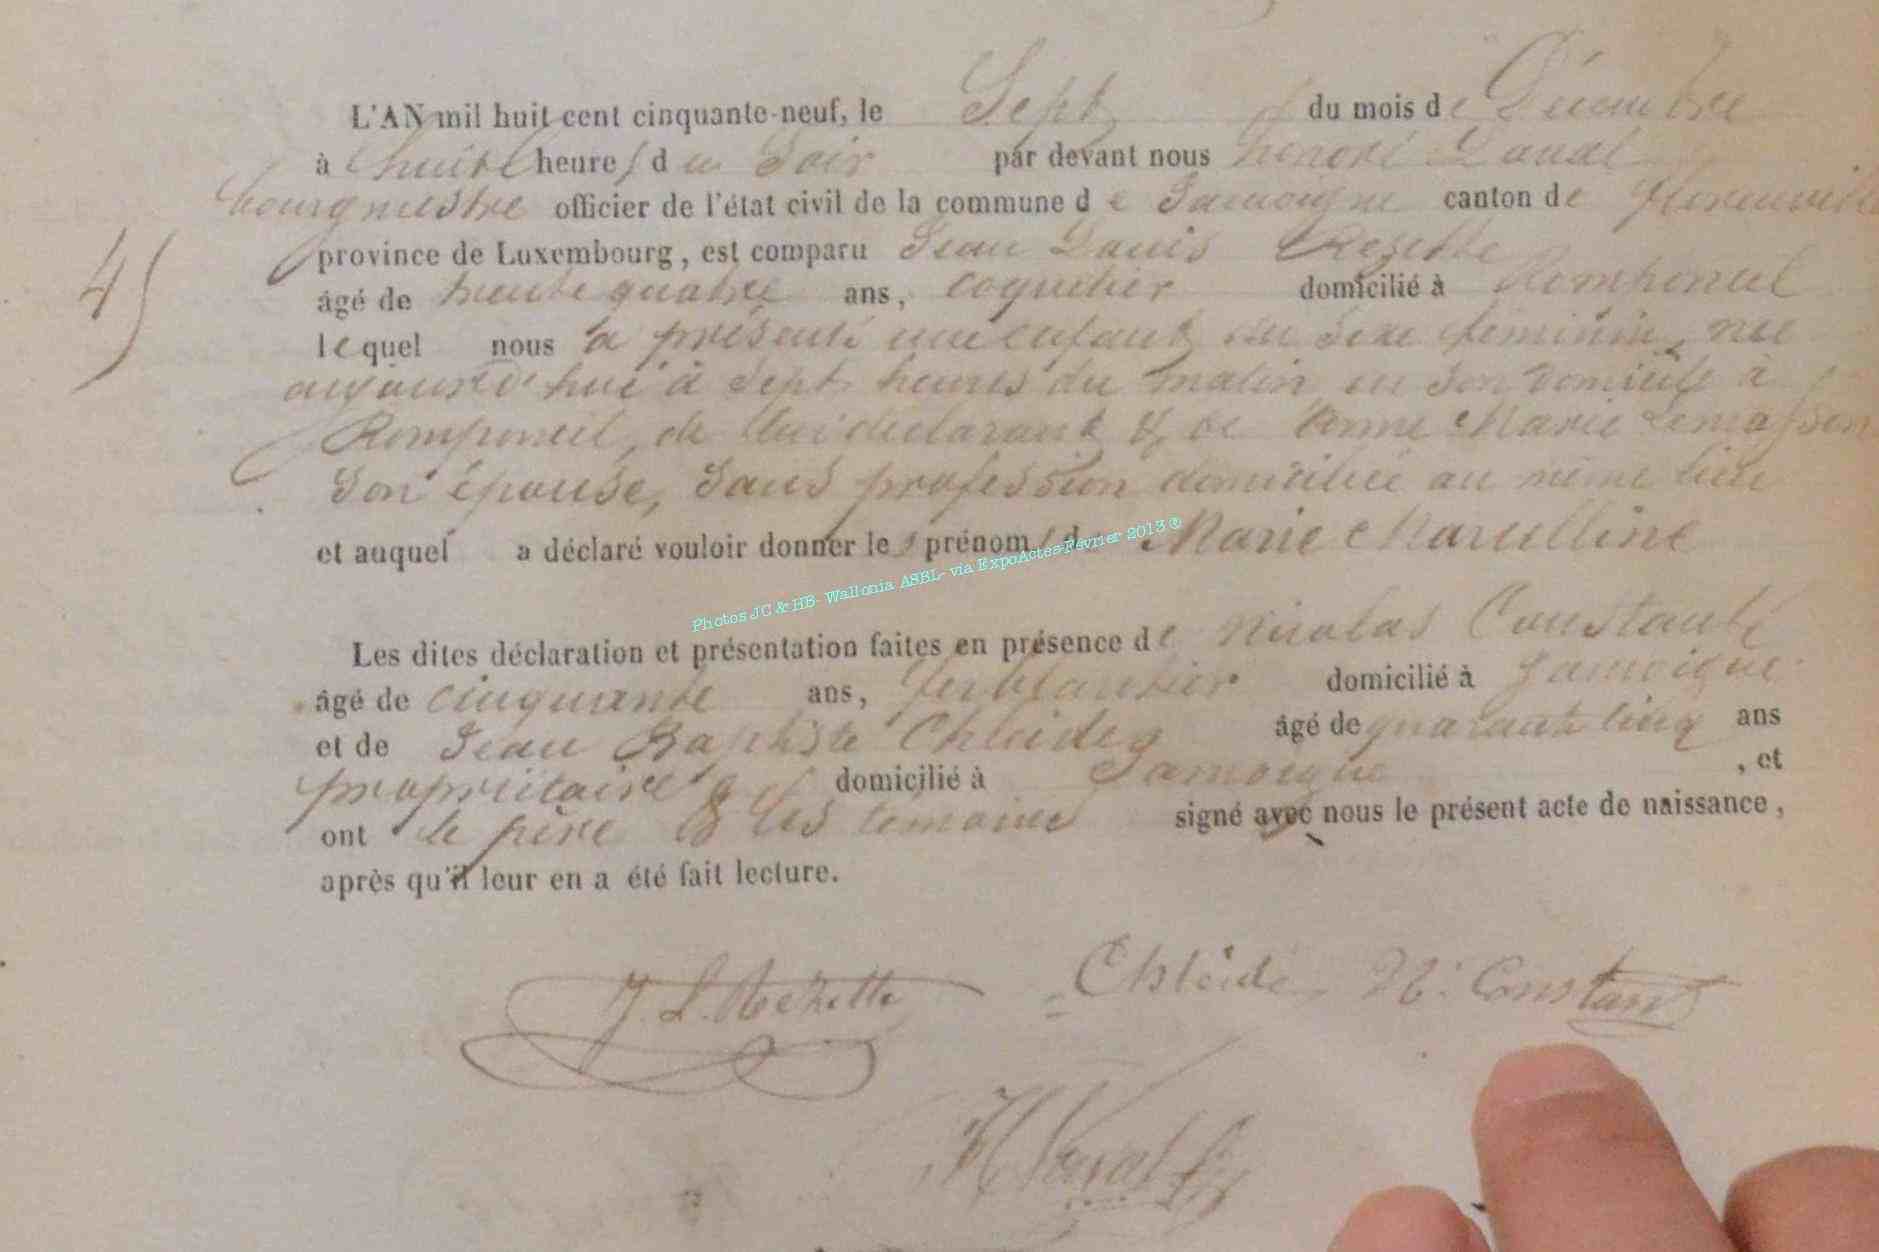 L'AN mil huit cent cinquante-neuf, le Sept du mois de Décembre
à huit heures du Soir par devant nous honoré Daval
bourgmestre officier de l'état civil de la commune de Jamoigne canton de Florenville
province de Luxembourg, est comparu Jean Louis Rezette
âgé de trente quatre ans, coquetier domicilié à Romponcel
45
lequel nous a présenté une enfant du sexe féminin, née
aujourd'hui à Sept heures du matin en son domicile à
Romponcel, de lui déclarant & de Anne Marie Lemasson
son épouse, sans profession domiciliée au même lieu
et auquel a déclaré vouloir donner les prénoms de Marie Marcelline
Photos JC & HB- Wallonia ASBL- via ExpoActes-Février 2013 ®
Les dites déclaration et présentation faites en présence de Nicolas Constant
âgé de cinquante ans, ferblantier domicilié à Jamoigne
et de Jean Baptiste Chleideq âgé de quarante cinq ans
propriétaire domicilié à Jamoigne, et
ont le père & les témoins signé avec nous le présent acte de naissance,
après qu'il leur en a été fait lecture.
J. L. Rezette Chleide N. Constant
H Daval